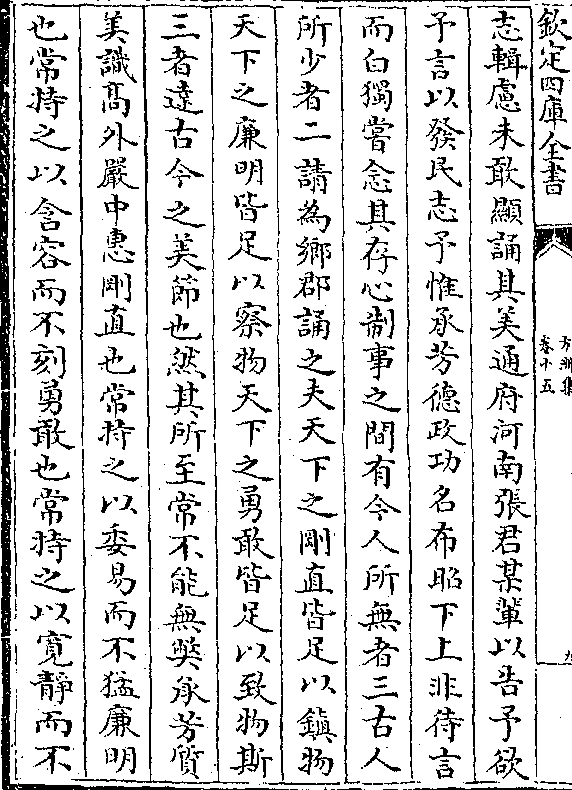 欽定四庫全書
卷十五
志輯慮未敢顯誦其美通府河南張君某輩以告予欲
予言以發民志予惟承芳德政功名布昭下上非待言
而白獨嘗念其存心制事之間有今人所無者三古人
所少者二請為鄉郡誦之夫天下之剛直皆足以鎮物
天下之廉明皆足以察物天下之勇敢皆足以致物斯
三者達古今之美節也然其所至常不能無弊承芳質
美識髙外嚴中惠剛直也常持之以委易而不猛廉明
也常持之以含容而不刻勇敢也常持之以寛靜而不